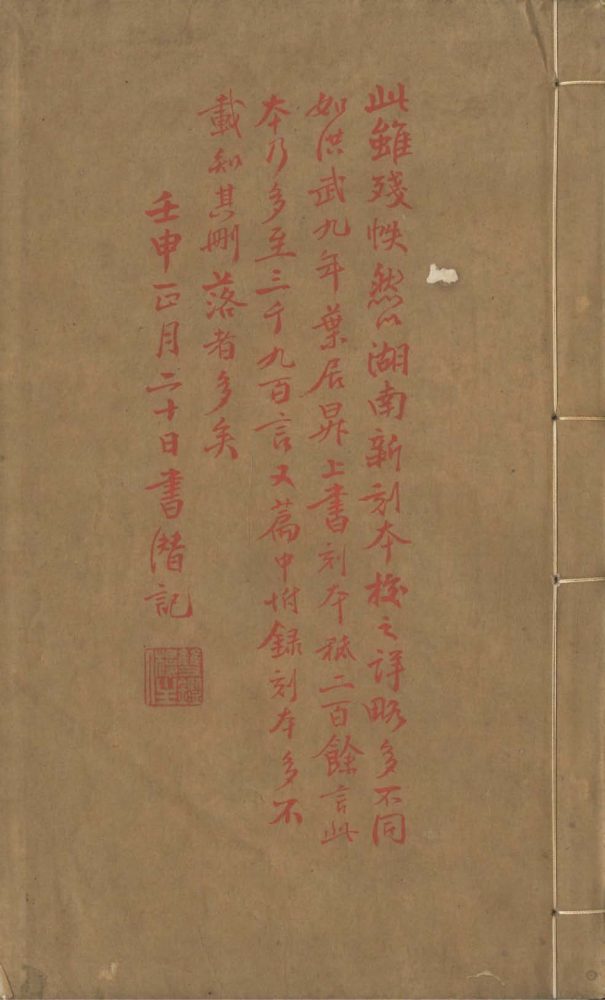 此雖殘帙然以湖南新刻本校之詳略多不同
如洪武九年葉居昇上書刻本祗二百餘言此
本乃多至三千九百言又篇中坿錄刻本多不
載知其刪落者多矣
壬申正月二十日書潛記